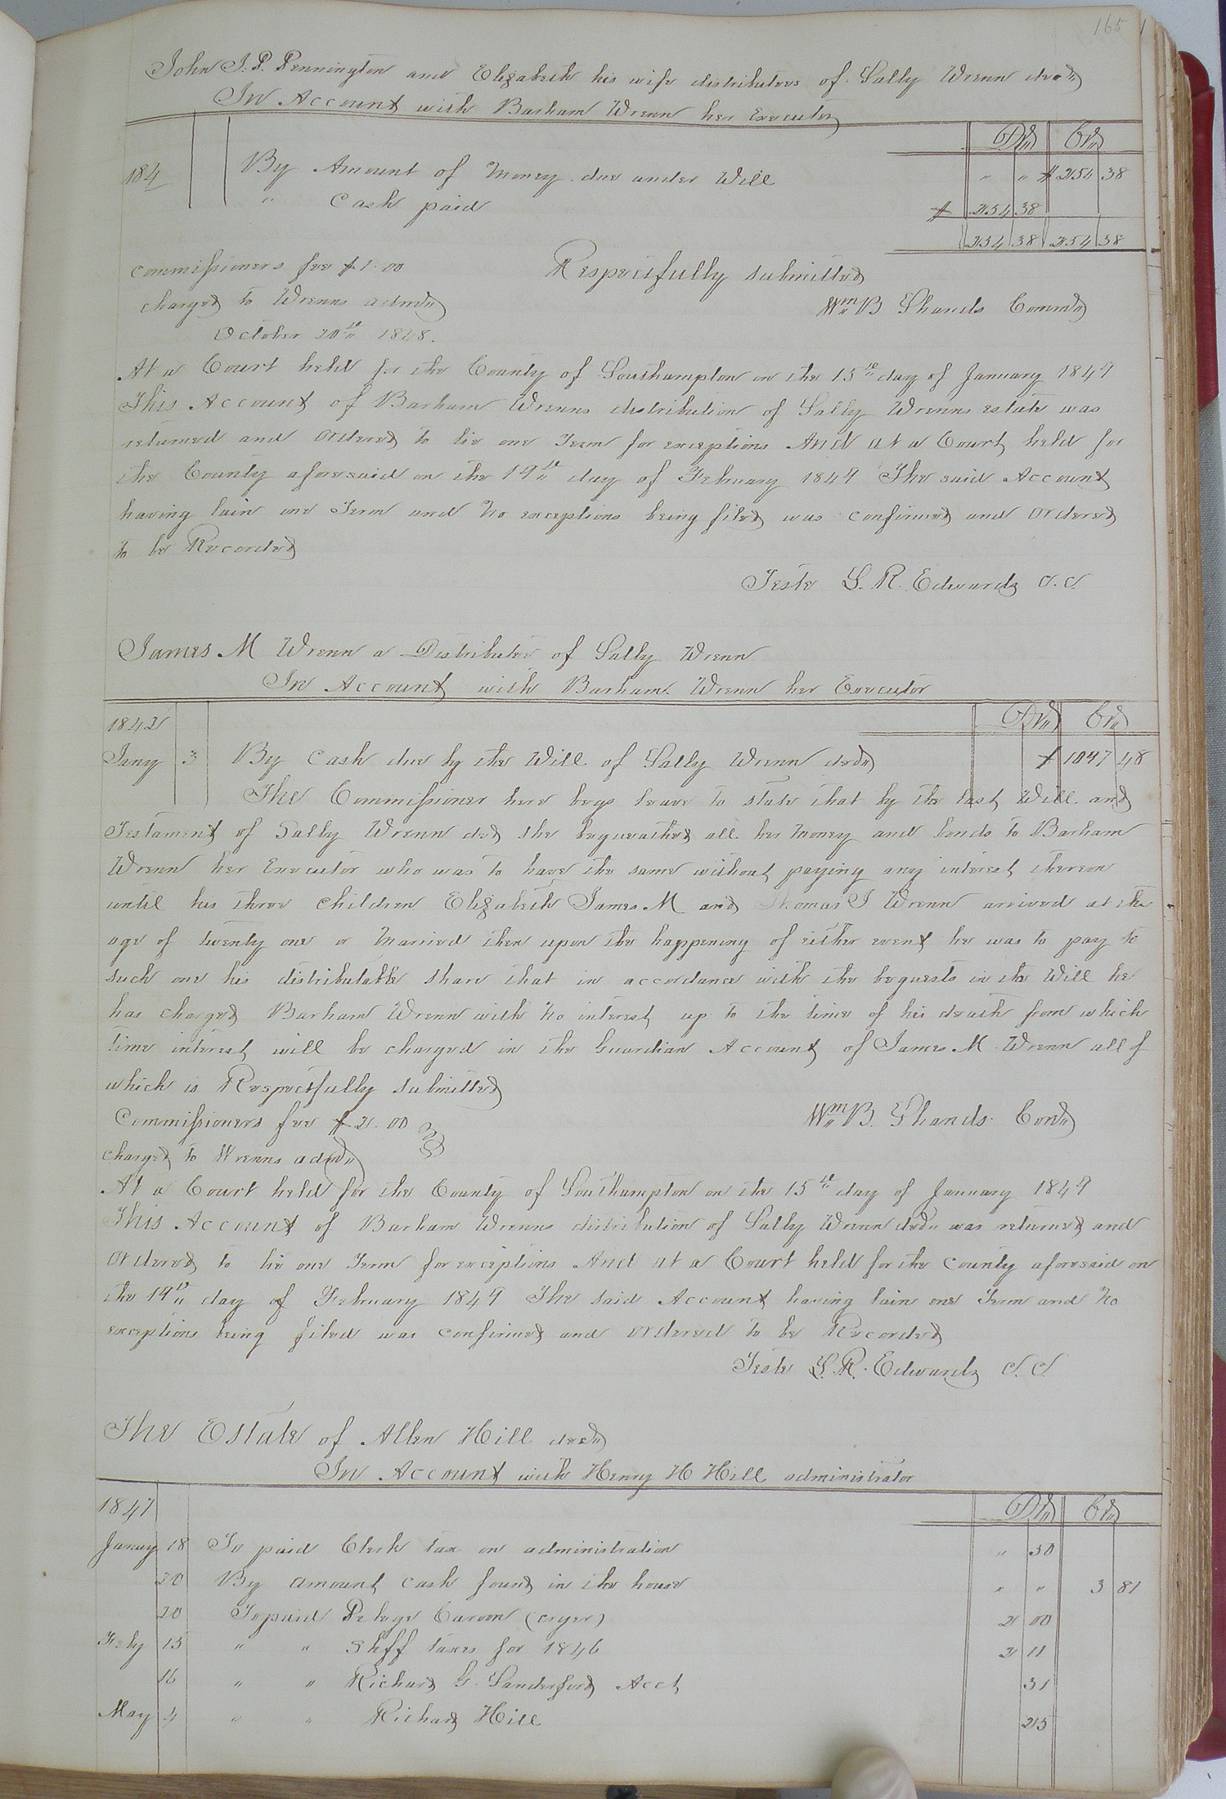 165
John J. P. Pennington and Elizabeth his wife distributees of Sally Wrenn decd
In Account with Barham Wrenn her Executor
Dr Cr
184 By Amount of Money due under Will " " $ 254 38
" Cash paid $ 254 38
254 38 254 38
Commissioners fee $1.00 Respectfully submitted
charged to Wrenns admr Wm B Shands Commr
October 20th 1848.
At a Court held for the County of Southampton on the 15th day of January 1849
This Account of Barham Wrenns distribution of Sally Wrenns estate was
returned and Ordered to lie one Term for exceptions And at a Court held for
the County aforesaid on the 19th day of February 1849 The said Account
having lain one Term and No exceptions being filed was confirmed and Ordered
to be Recorded
Teste L. R. Edwards C.C.
James M Wrenn a Distributee of Sally Wrenn
In Account with Barham Wrenn her Executor
1842 Dr Cr
Jany 3 By Cash due by the Will of Sally Wrenn decd $ 1047 48
The Commissioner here begs leave to state that by the last Will and
Testament of Sally Wrenn decd she bequeathed all her money and bonds to Barham
Wrenn her Executor who was to have the same without paying any interest thereon
until his three children Elizabeth James M and Thomas J Wrenn arrived at the
age of twenty one or Married then upon the happening of either event he was to pay to
such one his distributable share that in accordance with the bequests in the Will he
has charged Barham Wrenn with No interest up to the time of his death from which
time interest will be charged in the Guardian Account of James M Wrenn all of
which is Respectfully submitted
Commissioners fee $2.00 Wm B. Shands Comr
charged to Wrenns admr
At a Court held for the County of Southampton on the 15th day of January 1849
This Account of Barham Wrenns distribution of Sally Wrenn decd was returned and
Ordered to lie one Term for exceptions And at a Court held for the County aforesaid on
the 19th day of February 1849 The said Account having lain one Term and No
exceptions being filed was confirmed and Ordered to be Recorded
Teste L. R. Edwards C.C
The Estate of Allen Hill decd
In Account with Henry H Hill administrator
1847 Dr Cr
Jany 18 To paid Clerk tax on administration " 50
20 By amount cash found in the house " " 3 81
20 To paid Carson (cryer) 2 00
Feby 15 " " Shff taxes for 1846 2 11
16 " " Richard G. Sandeford Acct 51
May 4 " " Richard Hill 25